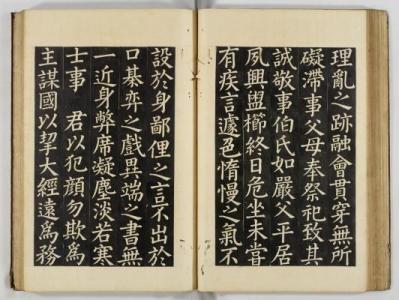 理亂之跡融會貫穿無所
礙滯事父母奉祭祀致其
誠敬事伯氏如嚴父平居
夙興盥櫛終日危坐未嘗
有疾言遽色惰慢之氣不
設於身鄙俚之言不出於
口棊弈之戲異端之書無
一近身弊席凝塵淡若寒
士事 君以犯顔勿欺爲
主謀國以挈大經遠爲務